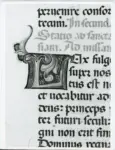 peruenire confor
reum. In secund
Statio ad sanctā
riam. Ad missam
Lux fulge
super nos
tus est n
et uocabitur ad
deus: princeps
ter futuri seculi:
gni non erit fini
Dominus regna